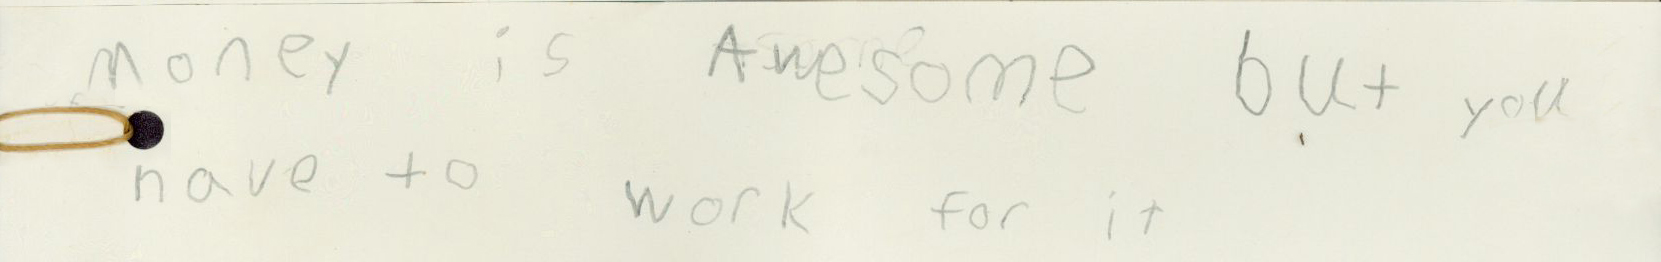 money is Awesome but you
have to work for it